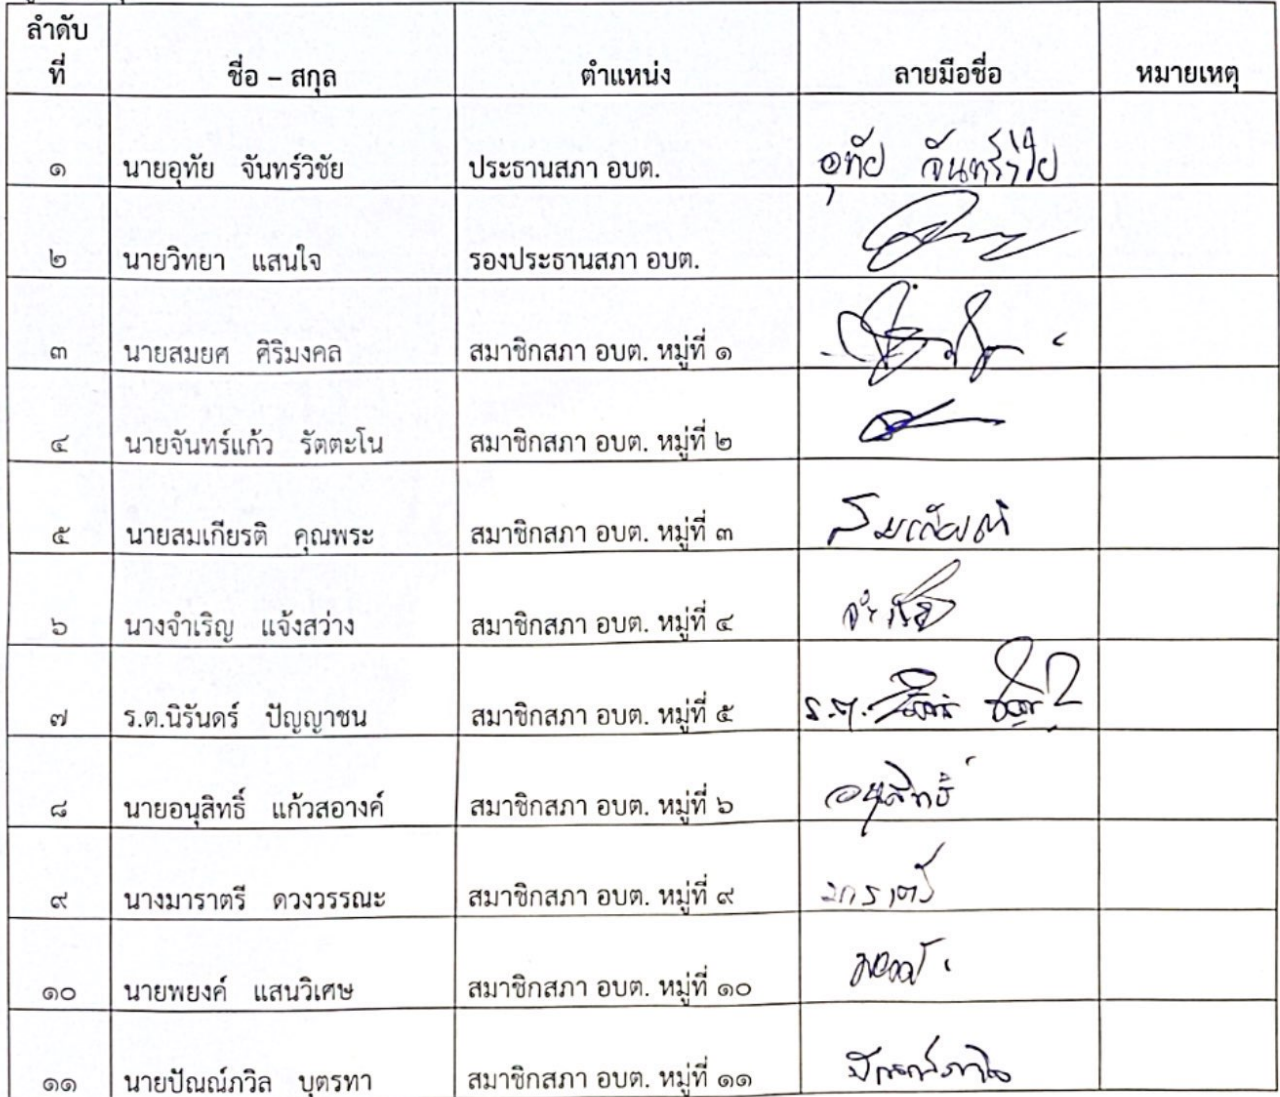 ลำดับ
ที่ ชื่อ – สกุล ตำแหน่ง ลายมือชื่อ หมายเหตุ
๑ นายอุทัย จันทร์วิชัย ประธานสภา อบต. อุทัย จันทร์วิชัย
๒ นายวิทยา แสนใจ รองประธานสภา อบต.
๓ นายสมยศ ศิริมงคล สมาชิกสภา อบต. หมู่ที่ ๑
๔ นายจันทร์แก้ว รัตตะโน สมาชิกสภา อบต. หมู่ที่ ๒
๕ นายสมเกียรติ คุณพระ สมาชิกสภา อบต. หมู่ที่ ๓ สมเกียรติ
๖ นางจำเริญ แจ้งสว่าง สมาชิกสภา อบต. หมู่ที่ ๔ จำเริญ
๗ ร.ต.นิรันดร์ ปัญญาชน สมาชิกสภา อบต. หมู่ที่ ๕ ร.ต.
๘ นายอนุสิทธิ์ แก้วสอางค์ สมาชิกสภา อบต. หมู่ที่ ๖ อนุสิทธิ์
๙ นางมาราตรี ดวงวรรณะ สมาชิกสภา อบต. หมู่ที่ ๙ มาราตรี
๑๐ นายพยงค์ แสนวิเศษ สมาชิกสภา อบต. หมู่ที่ ๑๐
๑๑ นายปัณณ์ภวิล บุตรทา สมาชิกสภา อบต. หมู่ที่ ๑๑